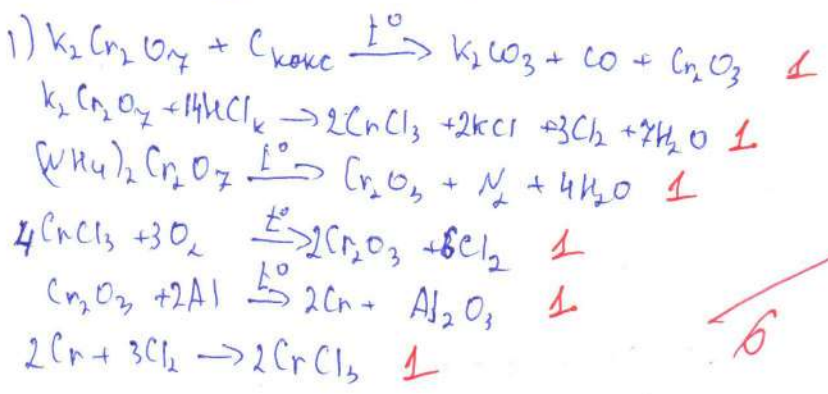 1) K₂Cr₂O₇ + Cкокс —t°→ K₂CO₃ + CO + Cr₂O₃ 1
K₂Cr₂O₇ + 14HClк → 2CrCl₃ + 2KCl + 3Cl₂ + 7H₂O 1
(NH₄)₂Cr₂O₇ —t°→ Cr₂O₃ + N₂ + 4H₂O 1
4CrCl₃ + 3O₂ —t°→ 2Cr₂O₃ + 6Cl₂ 1
Cr₂O₃ + 2Al —t°→ 2Cr + Al₂O₃ 1
2Cr + 3Cl₂ → 2CrCl₃ 1
6